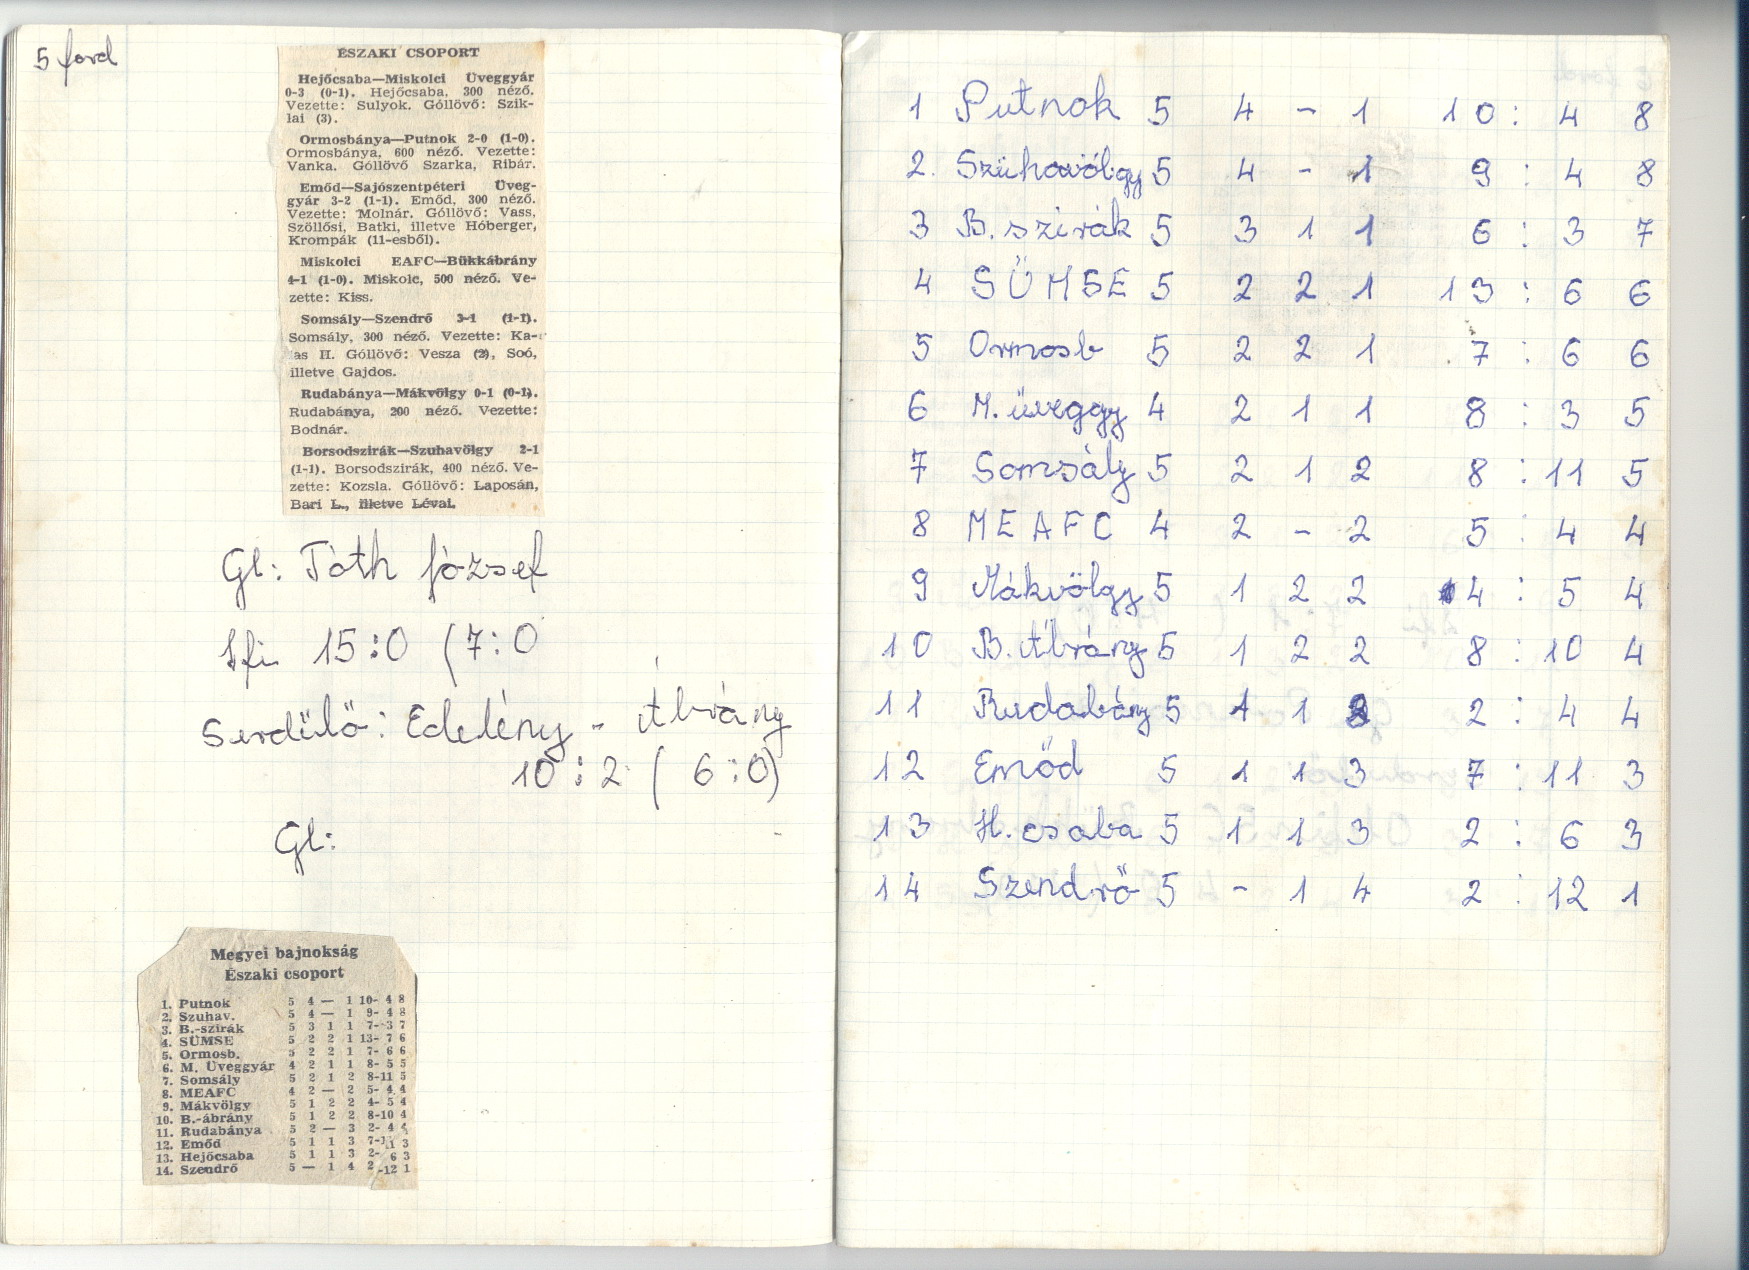 5 ford
ÉSZAKI CSOPORT
Hejőcsaba—Miskolci Üveggyár
0-3 (0-1). Hejőcsaba, 300 néző.
Vezette: Sulyok. Góllövő: Szik-
lai (3).
Ormosbánya—Putnok 2-0 (1-0).
Ormosbánya, 600 néző. Vezette:
Vanka. Góllövő Szarka, Ribár.
Emőd—Sajószentpéteri Üveg-
gyár 3-2 (1-1). Emőd, 300 néző.
Vezette: Molnár. Góllövő: Vass,
Szöllősi, Batki, illetve Hóberger,
Krompák (11-esből).
Miskolci EAFC—Bükkábrány
4-1 (1-0). Miskolc, 500 néző. Ve-
zette: Kiss.
Somsály—Szendrő 3-1 (1-1).
Somsály, 300 néző. Vezette: Ka-
as II. Góllövő: Vesza (2), Soó,
illetve Gajdos.
Rudabánya—Mákvölgy 0-1 (0-1).
Rudabánya, 200 néző. Vezette:
Bodnár.
Borsodszirák—Szuhavölgy 2-1
(1-1). Borsodszirák, 400 néző. Ve-
zette: Kozsla. Góllövő: Laposán,
Bari L., illetve Lévai.
Gl: Tóth József
Ifi 15:0 (7:0
Serdülő: Edelény - Ábrány
10:2 (6:0)
Gl:
Megyei bajnokság
Északi csoport
1. Putnok 5 4 — 1 10- 4 8
2. Szuhav. 5 4 — 1 9- 4 8
3. B.-szirák 5 3 1 1 7- 3 7
4. SÜMSE 5 2 2 1 13- 7 6
5. Ormosb. 5 2 2 1 7- 6 6
6. M. Üveggyár 4 2 1 1 8- 5 5
7. Somsály 5 2 1 2 8-11 5
8. MEAFC 4 2 — 2 5- 4 4
9. Mákvölgy 5 1 2 2 4- 5 4
10. B.-ábrány 5 1 2 2 8-10 4
11. Rudabánya 5 2 — 3 2- 4 4
12. Emőd 5 1 1 3 7-11 3
13. Hejőcsaba 5 1 1 3 2- 6 3
14. Szendrő 5 — 1 4 2 -12 1
1 Putnok 5 4 - 1 10: 4 8
2. Szuhavölgy 5 4 - 1 9 : 4 8
3 B. szirák 5 3 1 1 6 : 3 7
4 SÜMSE 5 2 2 1 13 : 6 6
5 Ormosb 5 2 2 1 7 : 6 6
6 M. üveggy 4 2 1 1 8 : 3 5
7 Somsály 5 2 1 2 8 : 11 5
8 MEAFC 4 2 - 2 5 : 4 4
9 Mákvölgy 5 1 2 2 4 : 5 4
10 B. Ábrány 5 1 2 2 8 : 10 4
11 Rudabány 5 1 1 3 2 : 4 4
12 Emőd 5 1 1 3 7 : 11 3
13 H. csaba 5 1 1 3 2 : 6 3
14 Szendrő 5 - 1 4 2 : 12 1